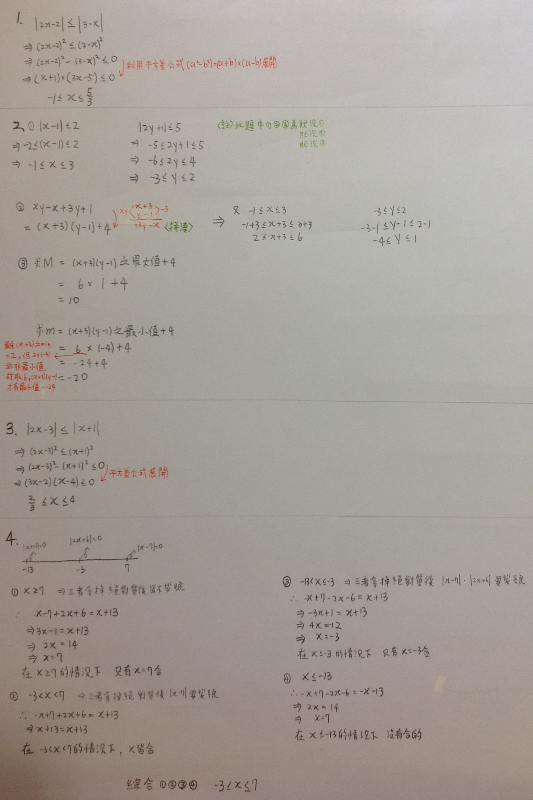 1. |2x-2| ≤ |3-x|
⇒ (2x-2)² ≤ (3-x)²
⇒ (2x-2)² - (3-x)² ≤ 0
利用平方差公式(a²-b²)=(a+b)×(a-b)展開
⇒ (x+1)×(3x-5) ≤ 0
-1 ≤ x ≤ 5/3
2. ① |x-1| ≤ 2
⇒ -2 ≤ (x-1) ≤ 2
⇒ -1 ≤ x ≤ 3
|2y+1| ≤ 5
⇒ -5 ≤ 2y+1 ≤ 5
⇒ -6 ≤ 2y ≤ 4
⇒ -3 ≤ y ≤ 2
此題中的
② xy-x+3y+1
= (x+3)(y-1)+4
xy x+3 -3
y-1
+3y-x
⇒ 又 -1 ≤ x ≤ 3
-1+3 ≤ x+3 ≤ 3+3
2 ≤ x+3 ≤ 6
-3 ≤ y ≤ 2
-3-1 ≤ y-1 ≤ 2-1
-4 ≤ y ≤ 1
③ 求M = (x+3)(y-1)之最大值+4
= 6 × 1 + 4
= 10
求m = (x+3)(y-1)之最小值+4
= 6 × (-4) + 4
= -24+4
= -20
=2, 但2×(-4)
最小值
才有最小值 -24
3. |2x-3| ≤ |x+1|
⇒ (2x-3)² ≤ (x+1)²
⇒ (2x-3)² - (x+1)² ≤ 0
平方差公式展開
⇒ (3x-2)(x-4) ≤ 0
2/3 ≤ x ≤ 4
4. |x+13|=0 |2x+6|=0 |x-7|=0
-13 -3 7
① x ≥ 7 ⇒ 三者拿掉絕對值後皆不變號
∴ x-7+2x+6 = x+13
⇒ 3x-1 = x+13
⇒ 2x = 14
⇒ x = 7
在 x≥7 的情況下 只有 x=7合
② -3<x<7 ⇒ 三者拿掉絕對值後 |x-7| 要變號
∴ -x+7+2x+6 = x+13
⇒ x+13 = x+13
在 -3<x<7的情況下, x皆合
③ -13<x≤-3 ⇒ 三者拿掉絕對值後 |x-7|、|2x+6| 要變號
∴ -x+7-2x-6 = x+13
⇒ -3x+1 = x+13
⇒ 4x = 12
⇒ x = -3
在 x≤-3 的情況下 只有 x=-3合
④ x ≤ -13
∴ -x+7-2x-6 = -x-13
⇒ 2x = 14
⇒ x = 7
在 x≤-13的情況下 沒有合的
綜合①②③④ -3 ≤ x ≤ 7